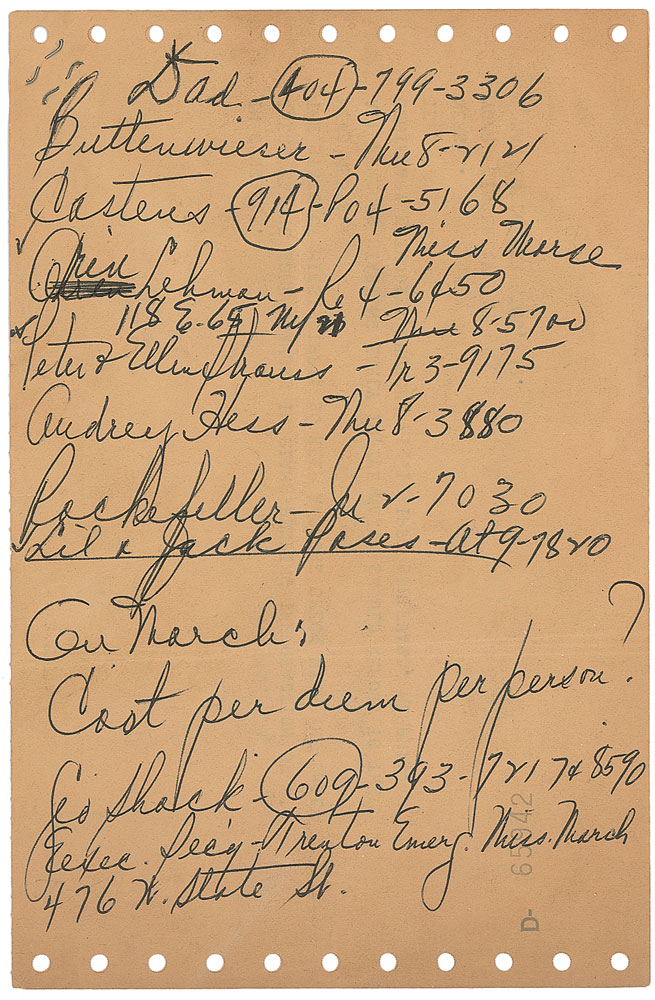 Dad - 404 - 799-3306
Buttenwieser - Mu 8-2121
Castens - 914 - Po 4 - 5168
Miss Morse
Orin Lehman - Re 4-6450
118 E. 65 NY 21 Mu 8-5700
Peter & Ellen Strauss - Tr 3-9175
Audrey Hess - Mu 8-3880
Rockefeller - Ju 2-7030
Lil & Jack Poses - At 9-7820
On March:
Cost per diem per person?
Geo Shack - 609 - 393-7217 x 8590
Exec. Sec'y - Trenton Emerg. Miss. March
476 W. State St.
D- 65942